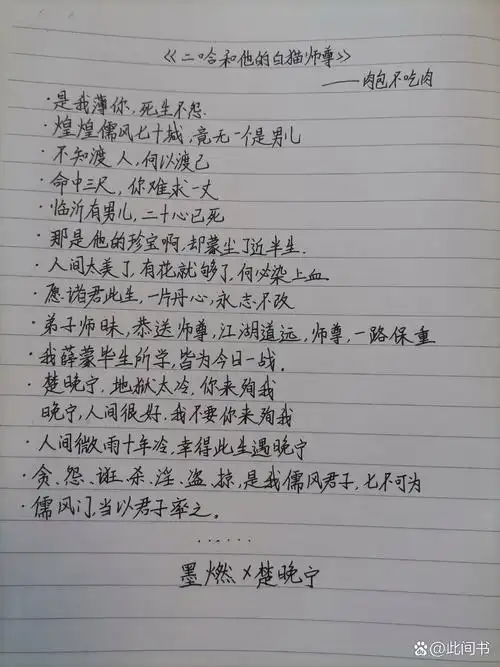 《二哈和他的白猫师尊》
——肉包不吃肉
·是我薄你,死生不怨.
·煌煌儒风七十城,竟无一个是男儿
·不知渡人,何以渡己
·命中三尺,你难求一丈
·临沂有男儿,二十心已死
·那是他的珍宝啊,却蒙尘了近半生.
·人间太美了,有花就够了,何必染上血
·愿诸君此生,一片丹心,永志不改
·弟子师昧,恭送师尊,江湖道远,师尊,一路保重
·我薛蒙毕生所学,皆为今日一战.
·楚晚宁,地狱太冷,你来殉我
晚宁,人间很好.我不要你来殉我
·人间微雨十年冷,幸得此生遇晚宁
·贪、怨、诳、杀、淫、盗、掠,是我儒风君子,七不可为
·儒风门,当以君子率之。
······
墨燃×楚晚宁
此间书